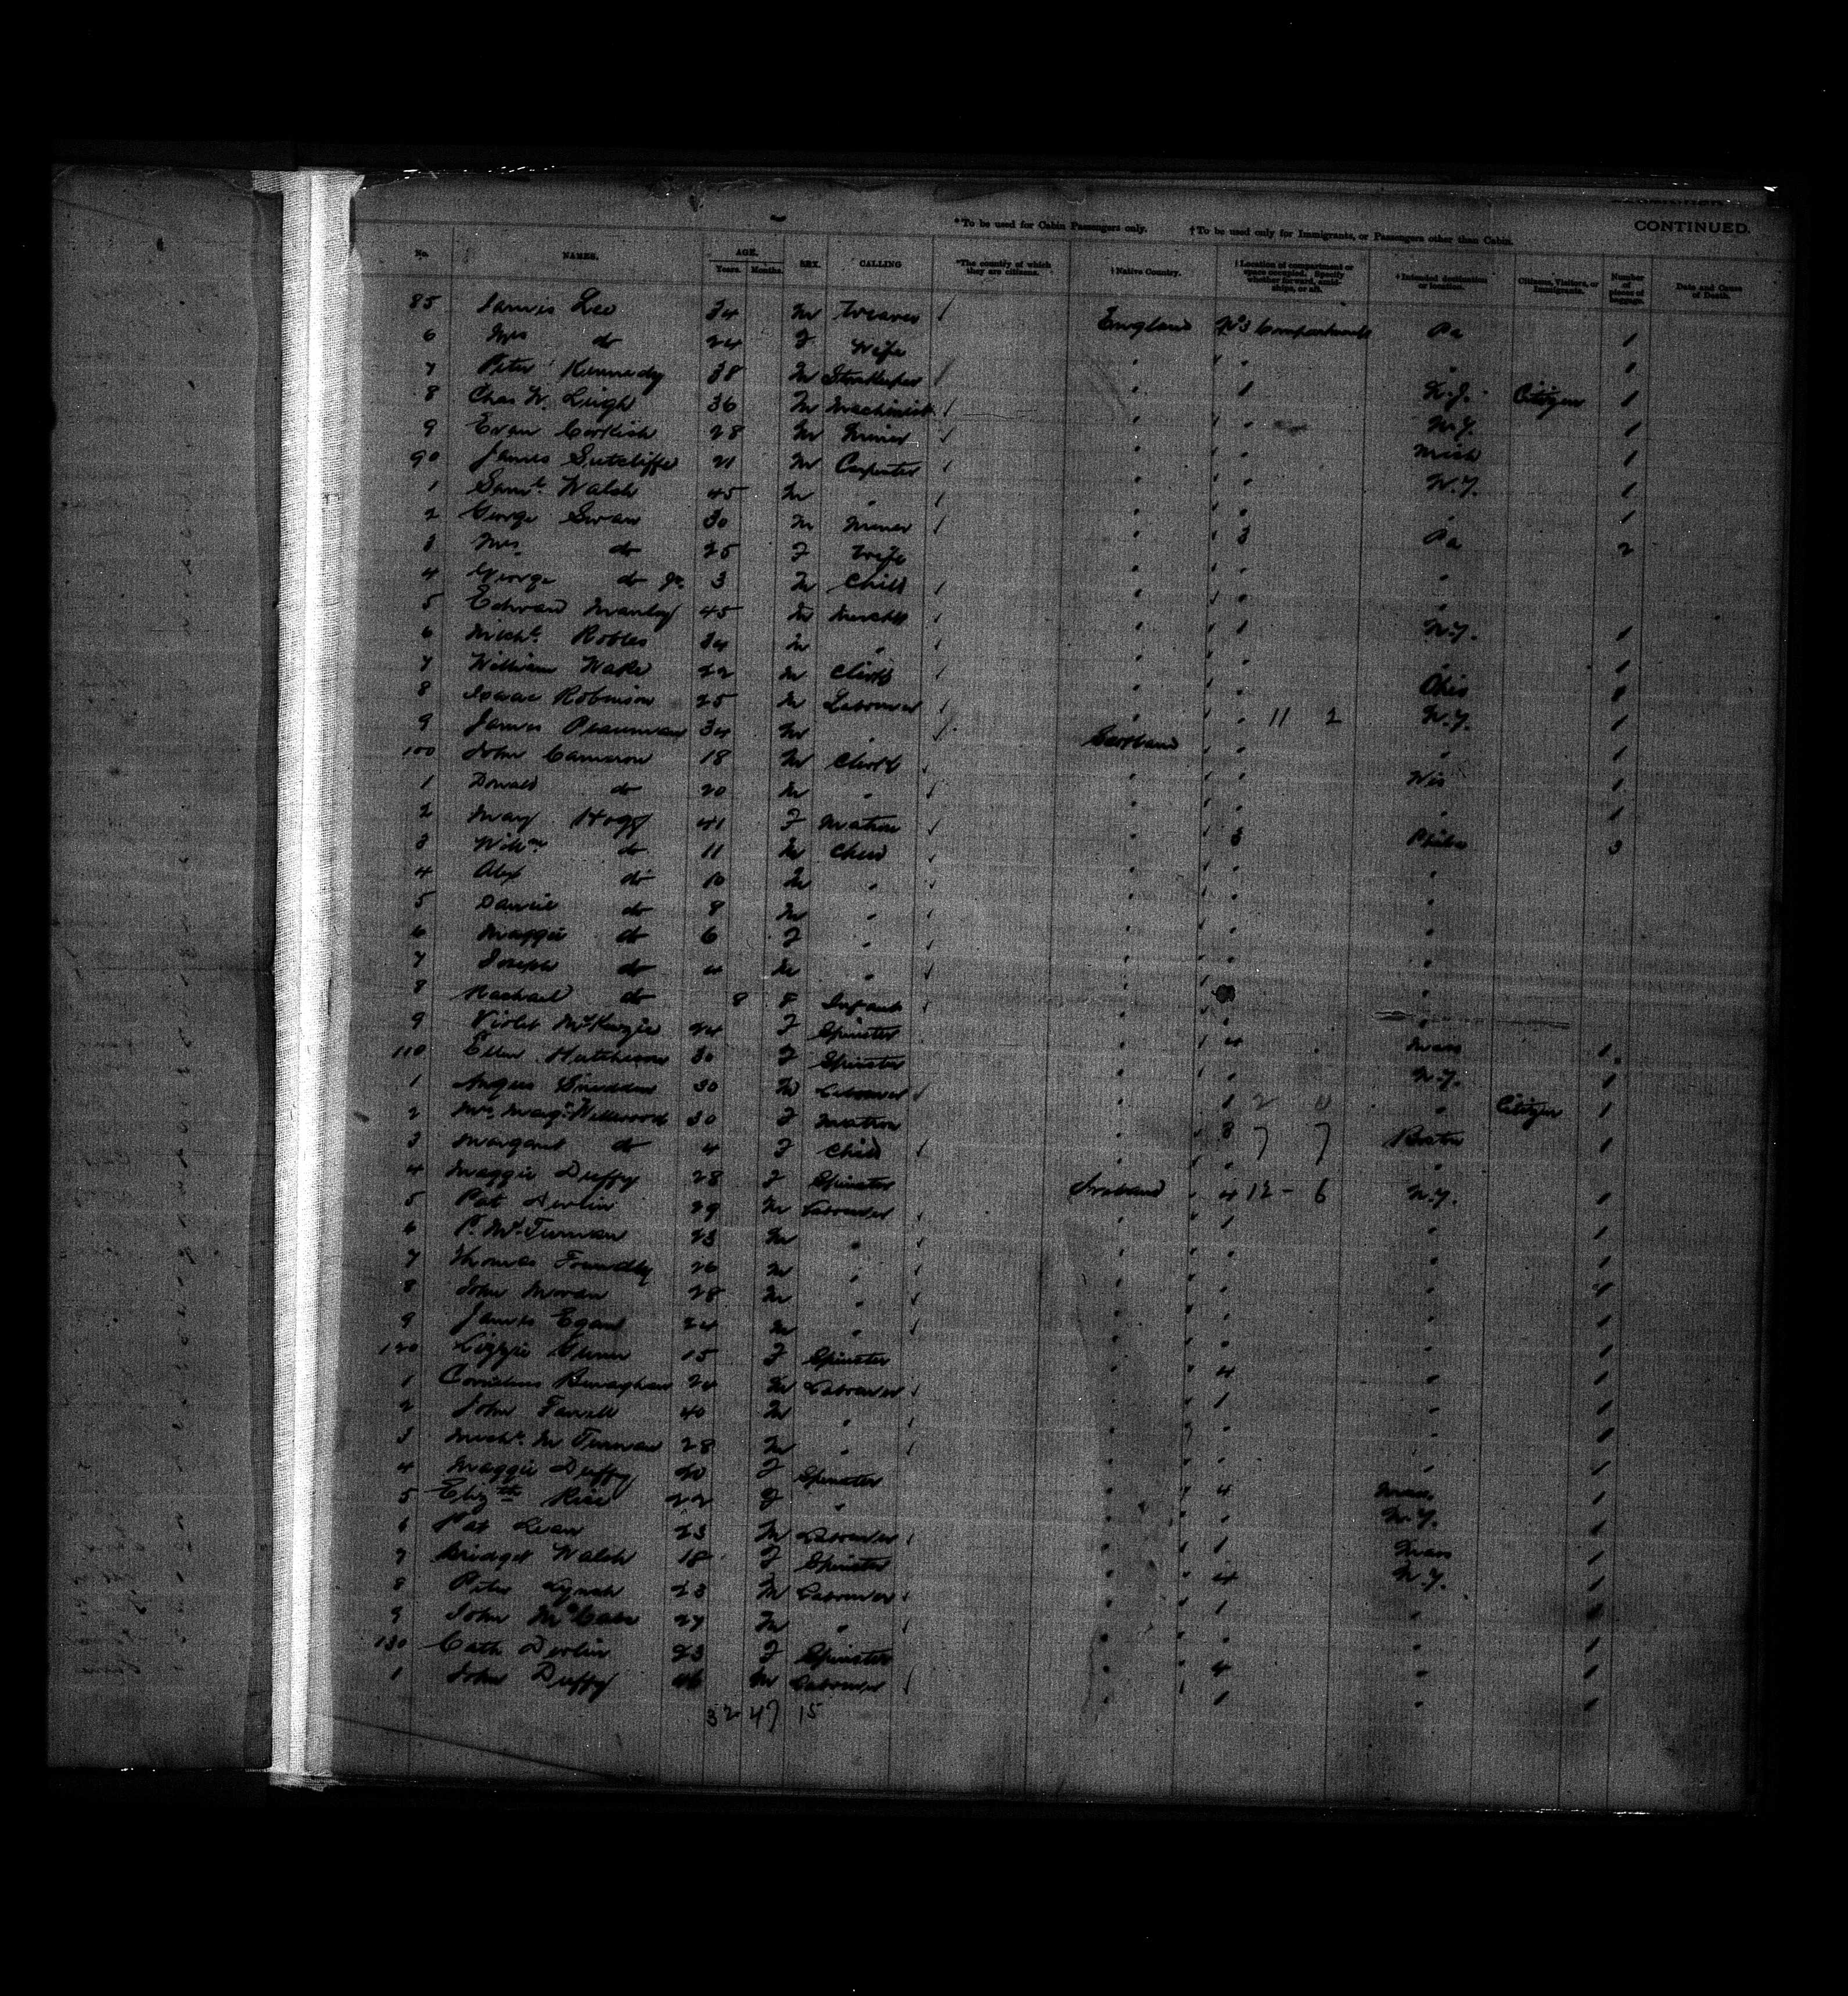 CONTINUED.
*To be used for Cabin Passengers only. †To be used only for Immigrants, or Passengers other than Cabin.
No. NAMES. AGE. Years. Months. SEX. CALLING *The country of which they are citizens. †Native Country. †Location of compartment or space occupied. Specify whether forward, amidships, or aft. †Intended destination or location. Citizens, Visitors, or Immigrants. Number of pieces of baggage. Date and Cause of Death.
85 Lee 34 M Weaver England No 3 Compartment Pa 1
6 Mrs do 24 F Wife " " " " 1
7 Peter Kennedy 38 M Storekeeper " " 1 N.J. Citizen 1
8 Chas W. Leigh 36 M Machinist " " " N.Y. 1
9 Evan 28 M Miner " " " Mich 1
90 James Sutcliffe 21 M Carpenter " " " N.Y. 1
1 Saml. Walsh 45 M " " " " " 1
2 George Swan 30 M Miner " " 3 Pa 2
3 Mrs do 25 F Wife " " " "
4 George do Jr. 3 M Child " " " "
5 Edward Manley 45 M " " 1 N.Y. 1
6 Michl. Robles 34 M " " " " " 1
7 William Wake 22 M Clerk " " " Ohio 1
8 Isaac Robinson 25 M Labourer " " " 11 2 N.Y. 1
9 James 34 M " Scotland " " " 1
100 John Cameron 18 M Clerk " " " Wis 1
1 Donald do 20 M " " " " " 1
2 Mary Hogg 41 F Matron " " 3 Phila 3
3 Willm do 11 M Child " " " "
4 Alex do 10 M " " " " "
5 Daniel do 8 M " " " " "
6 Maggie do 6 F " " " " "
7 Joseph do 4 M " " " " "
8 Rachael do 8 F Infant " " "
9 Violet McKenzie 24 F Spinster " " 4 Mass 1
110 Ellen Hutchison 30 F Spinster " " " N.Y. 1
1 Angus Sneddon 30 M Labourer " 1 2 4 " Citizen 1
2 Mrs Margt. Wellwood 30 F Matron " " 3 7 7 Boston 1
3 Margaret do 4 F Child " " " "
4 Maggie Duffy 28 F Spinster Ireland " 4 12 - 6 N.Y. 1
5 Pat Devlin 29 M Labourer " " 1 " 1
6 P. McTurnan 23 M " " " " " 1
7 Thomas 26 M " " " " "
8 John Moran 28 M " " " " " 1
9 James Egan 24 M " " " " " 1
120 Lizzie 15 F Spinster " " 4 " 1
1 Cornelius 24 M Labourer " " 1 " 1
2 John Farrell 40 M " " " " " 1
3 Michl. McTurnan 28 M " " " " " 1
4 Maggie Duffy 20 F Spinster " " 4 Mass 1
5 Elizth Rice 22 F " " " " N.Y. 1
6 Pat 23 M Labourer " " 1 Mass 1
7 Bridget Walsh 18 F Spinster " " 4 N.Y. 1
8 Peter Lynch 23 M Labourer " " 1 " 1
9 John 27 M " " " " " 1
130 Cath Devlin 23 F Spinster " " 4 " 1
1 John Duffy M Labourer " " 1 " 1
32 47 15